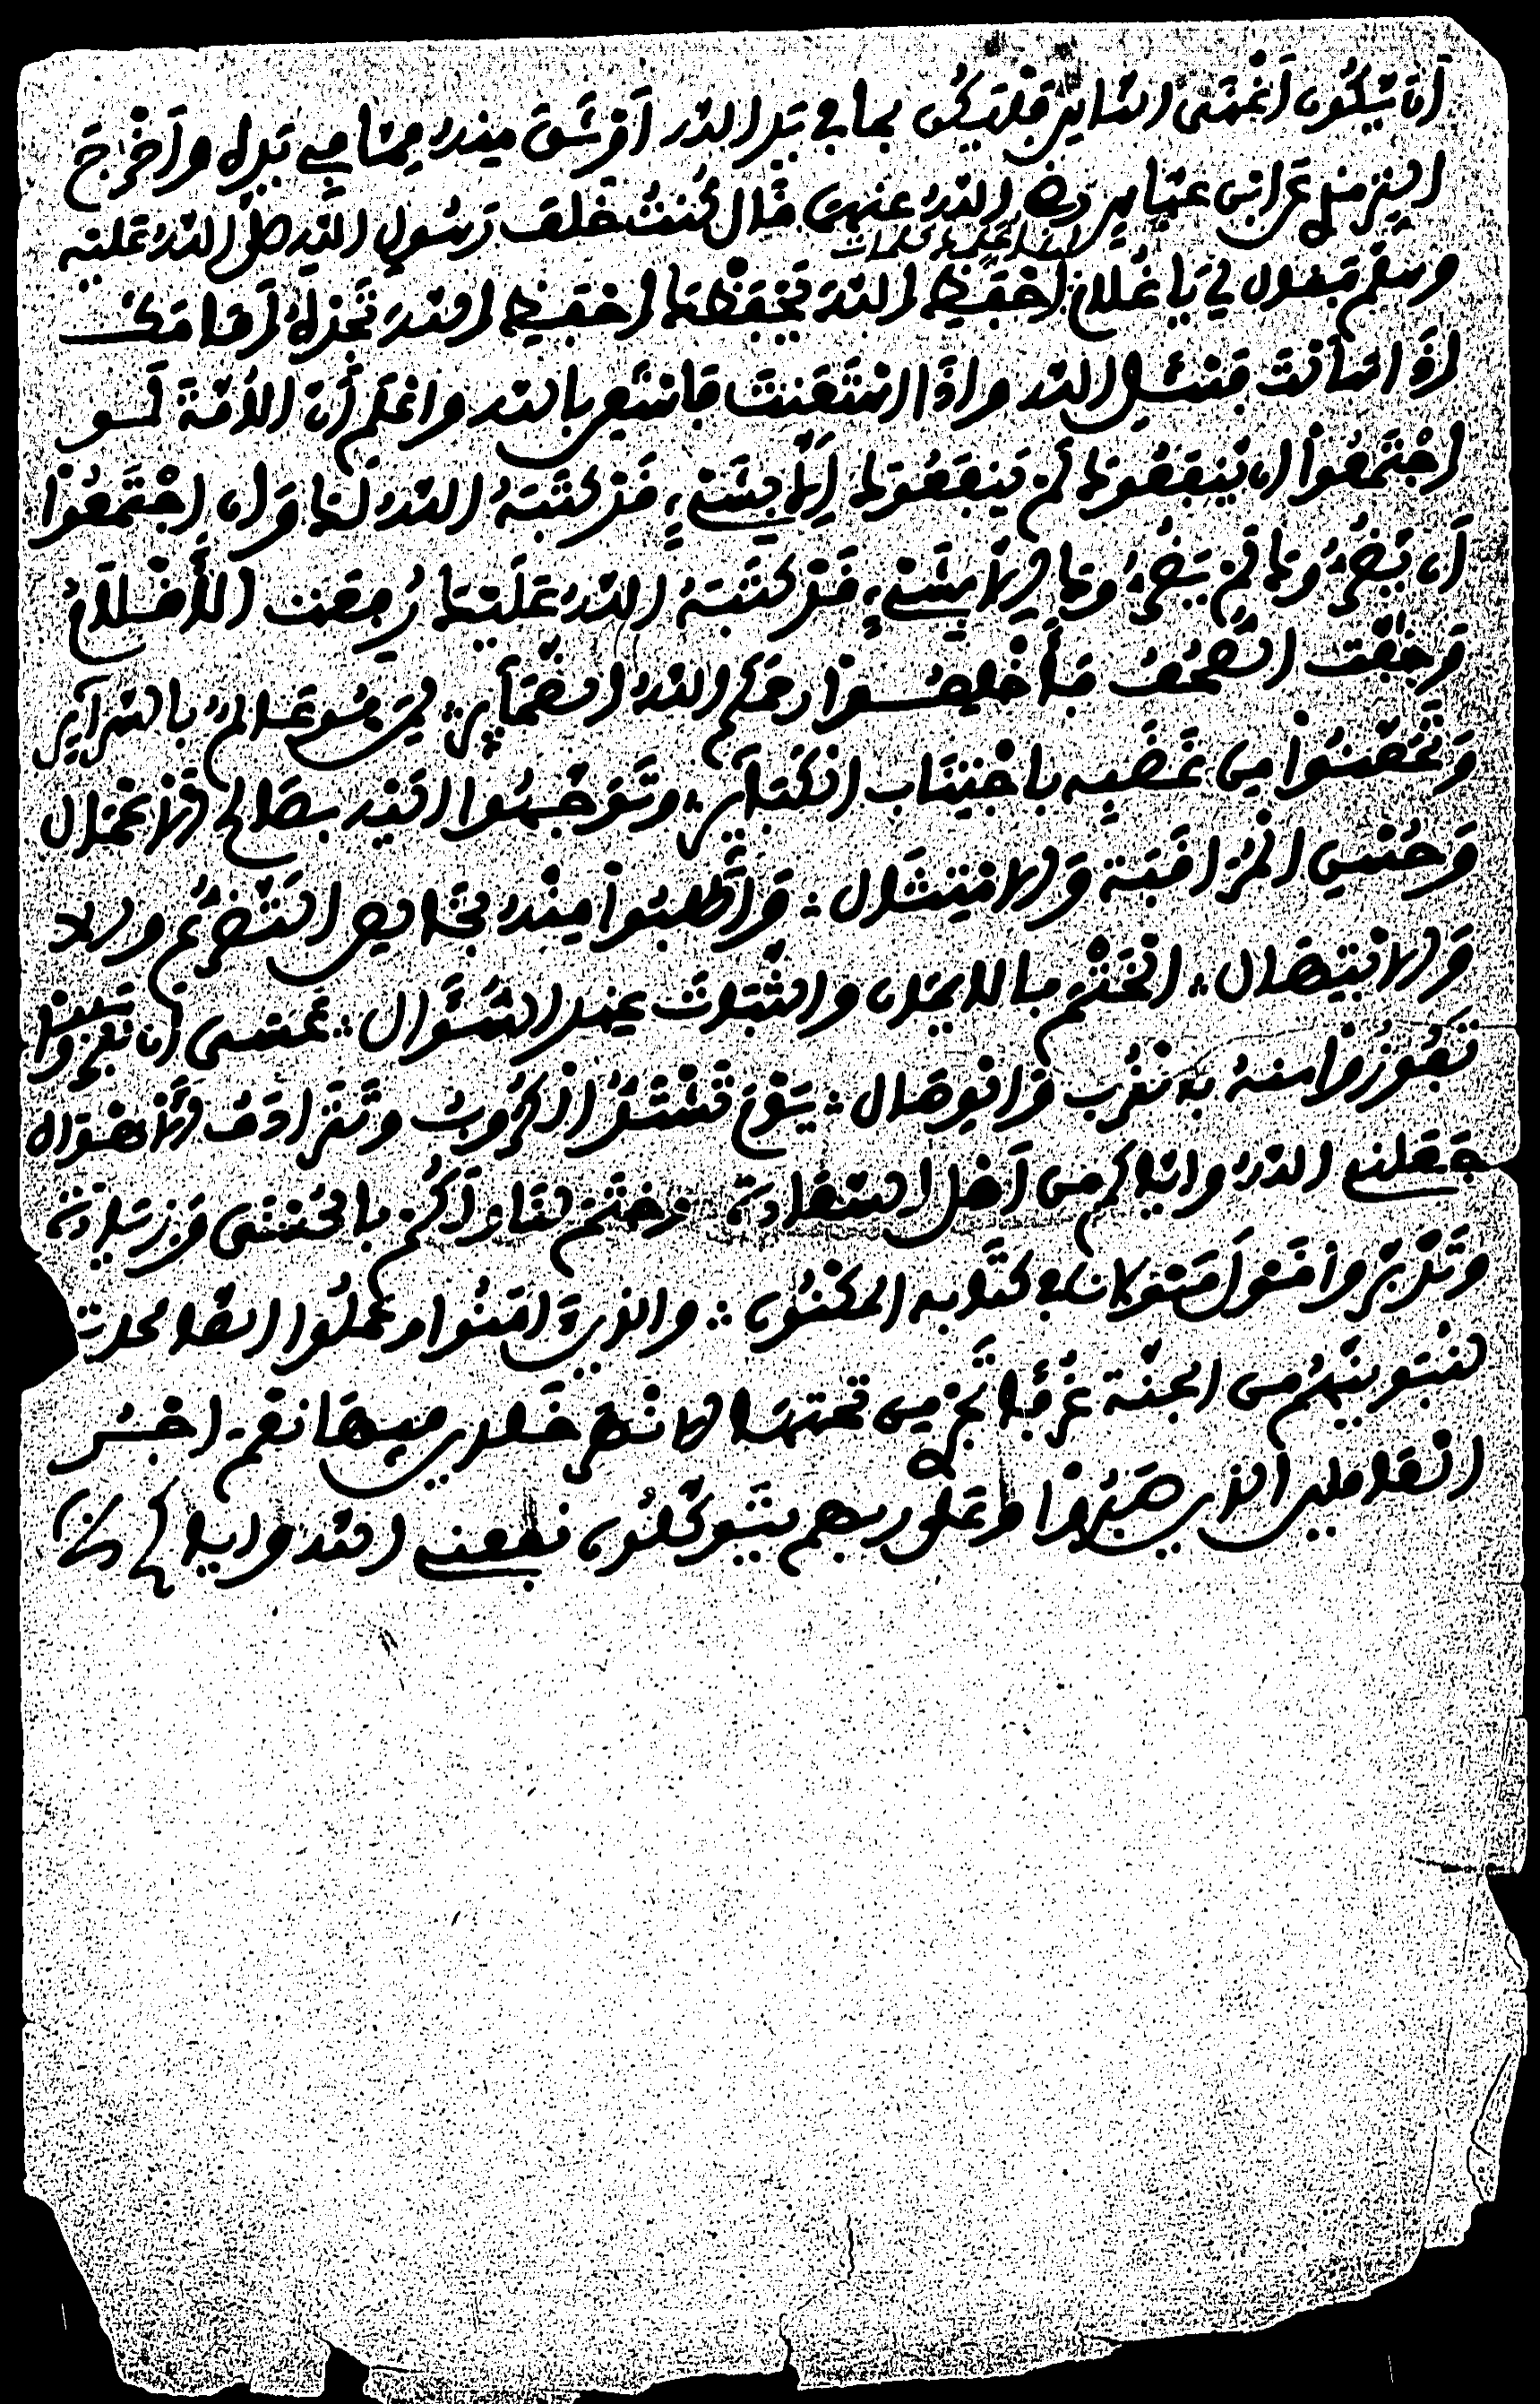 أَن يَكُون أَغْنَى الناس فليكن بما في يد الله أوثَق منه مما في يده وأخْرج
الترمذي عن ابن عباس رضي الله عنهما قال كُنتُ خَلف رَسُول الله صلى الله عليه
وسلم فقال لي يا غُلام احْفَظ الله يَحْفَظك احْفَظ الله تَجده أمامك
إني أعلمك كلمات
إذا سألت فسئل الله وإذا استَعَنت فاستعن بالله واعْلم أن الأمة لَو
اجْتَمعُوا أن يَنفَعُوك لم يَنفَعُوك إلا بشيء قَد كَتبَهُ الله لك وإن اجْتَمعُوا
أن يَضُرُّوك لم يَضُرُّوك إلا بشيء قد كتَبَهُ الله عَلَيك رُفِعَت الأقْلام
وَجفّت الصُّحُف فأخلِصُوا رحمكم الله الضمآير لمن هو عالم بالسرآير
وتَحَصَّنُوا من غَضَبِه باجْتِنَاب الكَبَآير وتَوَجَّهُوا إليه بصَالح الأعْمَال
وَحُسْن المُرَاقَبَة والامْتِثَال واطلبُوا منه بخالص التضرُّع
والابْتِهَال الخَتْم بالإيمان والثَّبَات عند السُّؤَال عَسى أن
تَفُوزُوا منه بالقُرب والوِصَال يَوْم تَشْتَدُّ الكُروب وتَتَرَادَف الأهْوَال
جَعَلني الله وإياكم من أهْل السَّعَادة وخَتَم لنا ولكُم بالحُسْنَى وزيادة
وتَدَبَّروا قَول مَولانا في كتابه المكنُون والذين آمَنُوا وعَملُوا الصَّالحات
لنُبَوِّئنَّهُم من الجنَّة غُرفًا تَجْري من تحتها الأنهر خَلدين فيها نعْم أجْر
العاملين الذين صَبَرُوا وعَلى ربهم يَتَوكَّلُون نفعني الله وإياكم